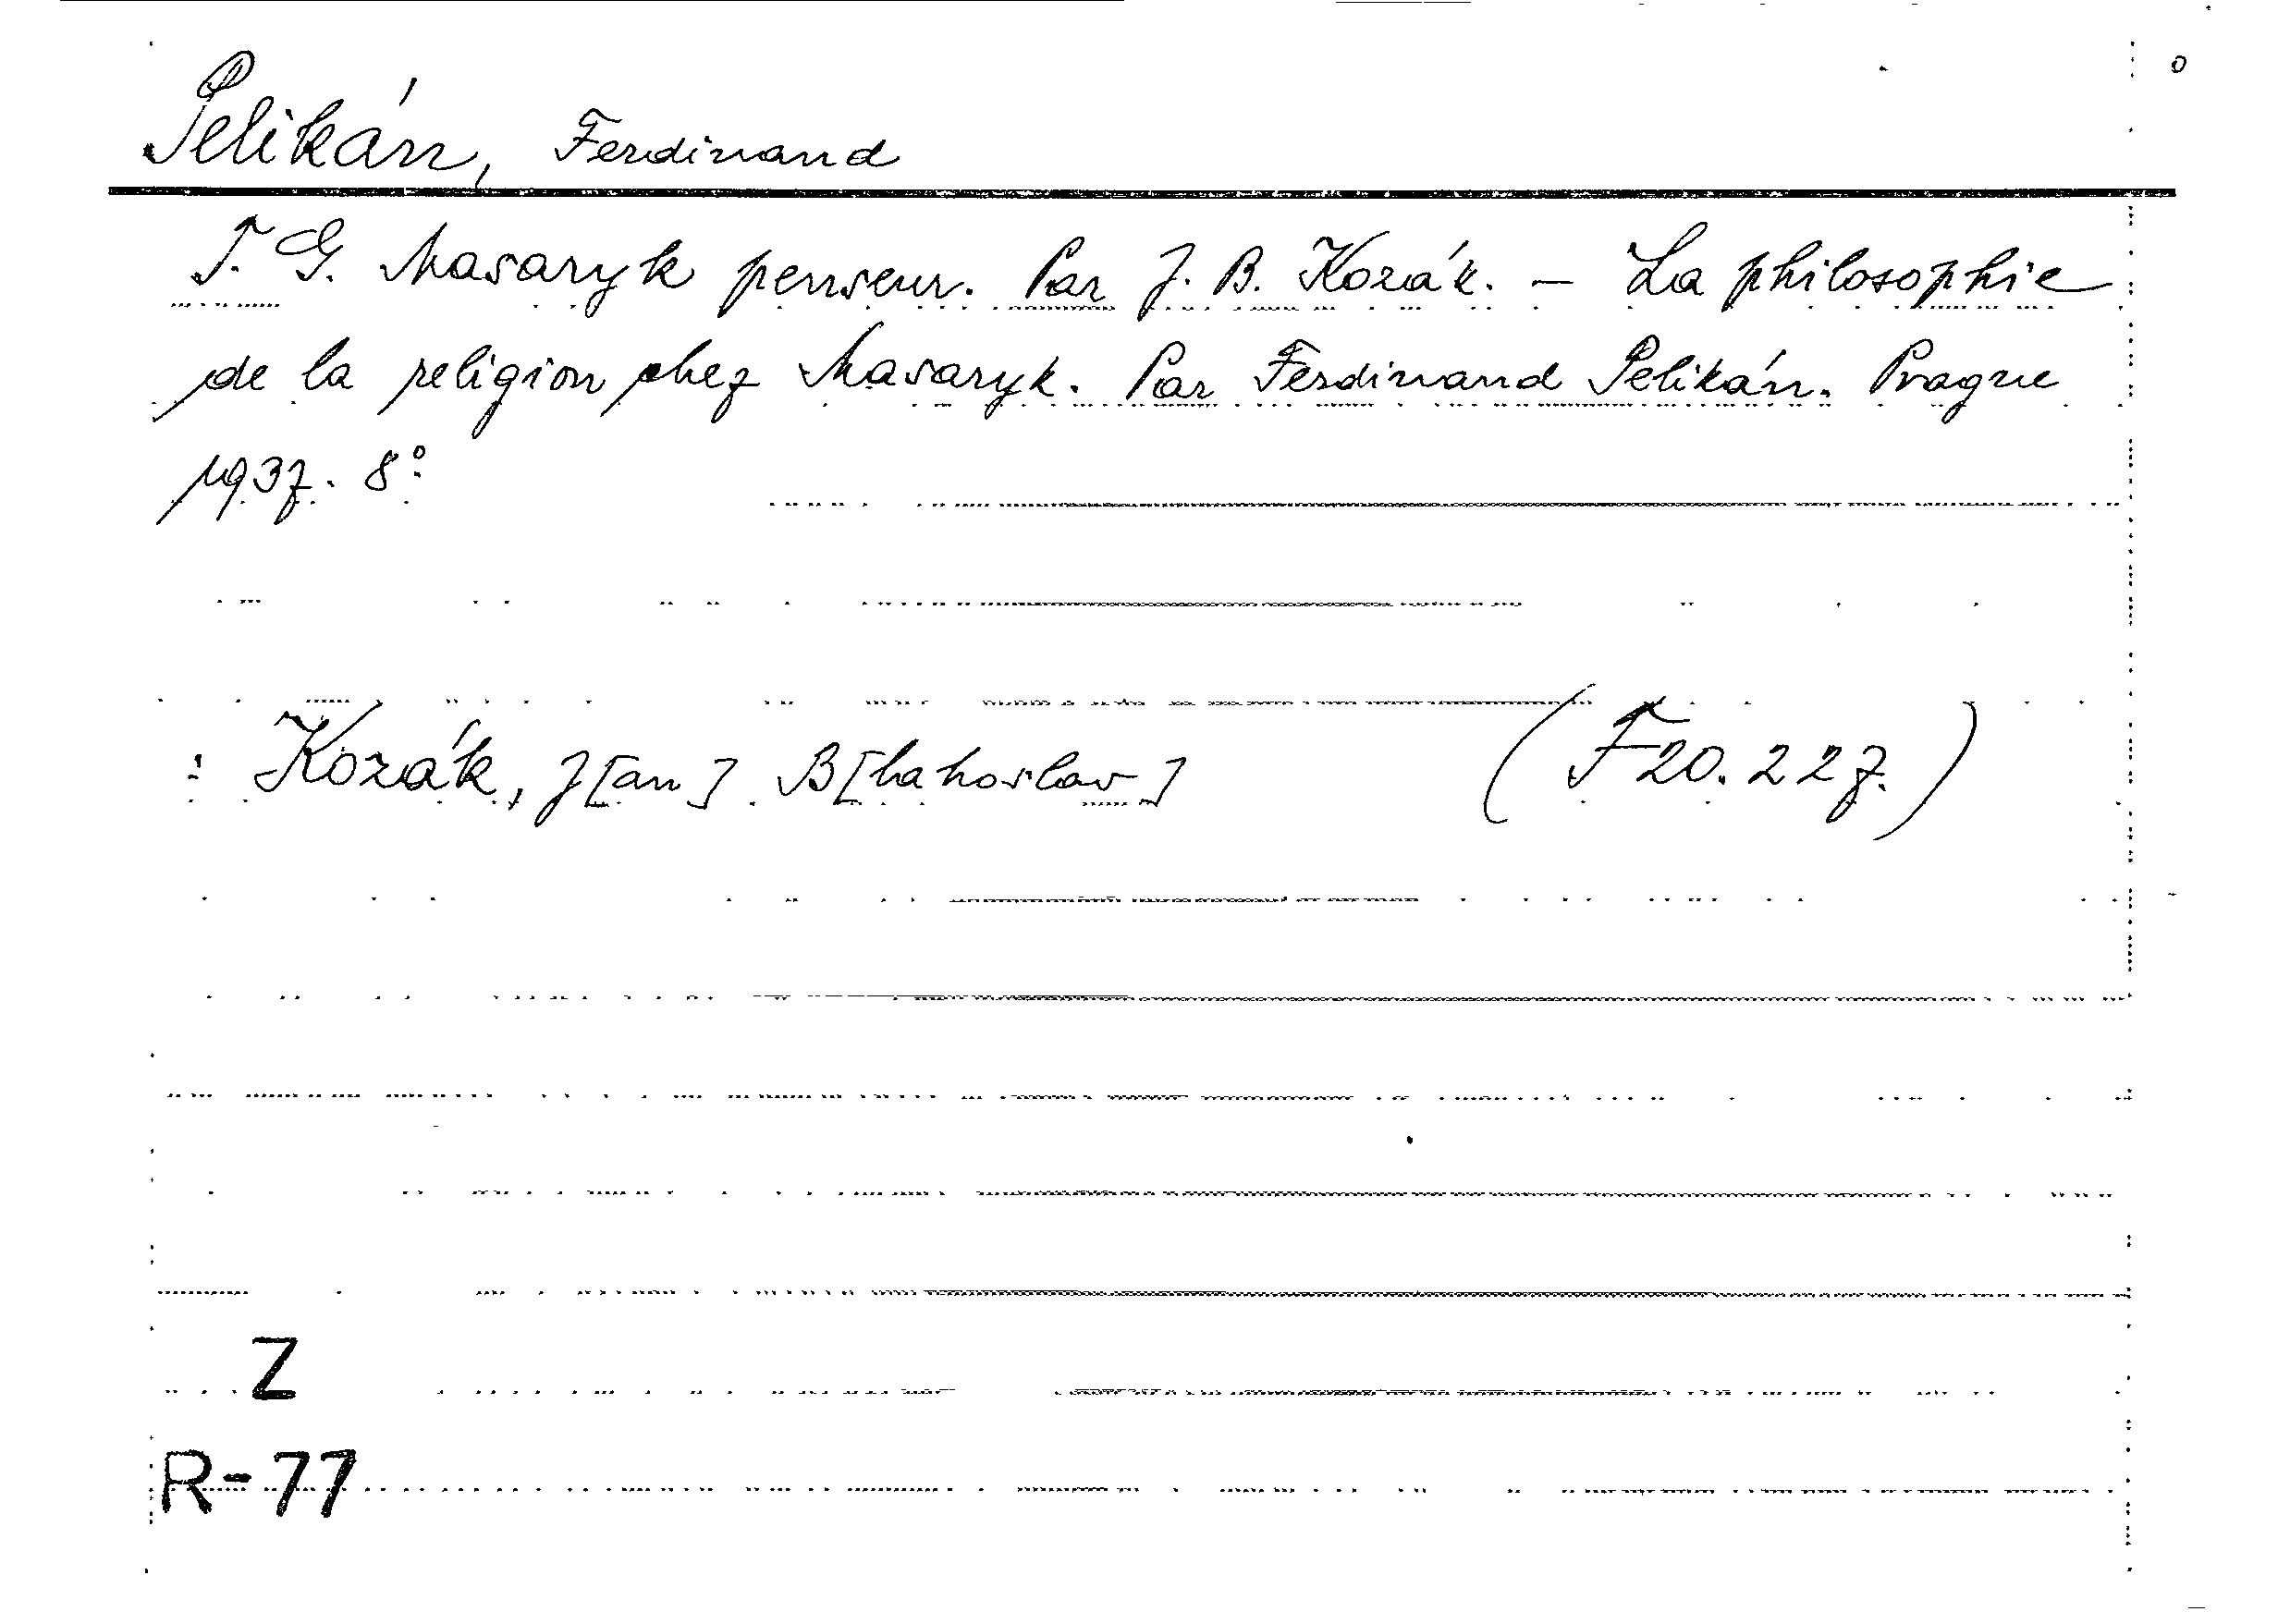 Pelikán, Ferdinand
T. G. Masaryk penseur. Par J. B. Kozák. – La philosophie
de la religion chez Masaryk. Par Ferdinand Pelikán. Prague
1937. 8°.
: Kozák, J[an] B[lahoslav] (F20.227.)
Z
R-77